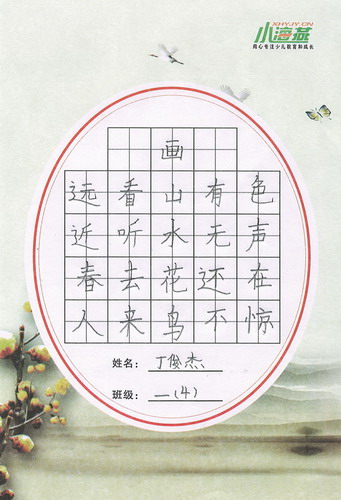 XHYJY.CN
小海燕
用心专注少儿教育和成长
画
远看山有色
近听水无声
春去花还在
人来鸟不惊
姓名：丁俊杰
班级：一（4）